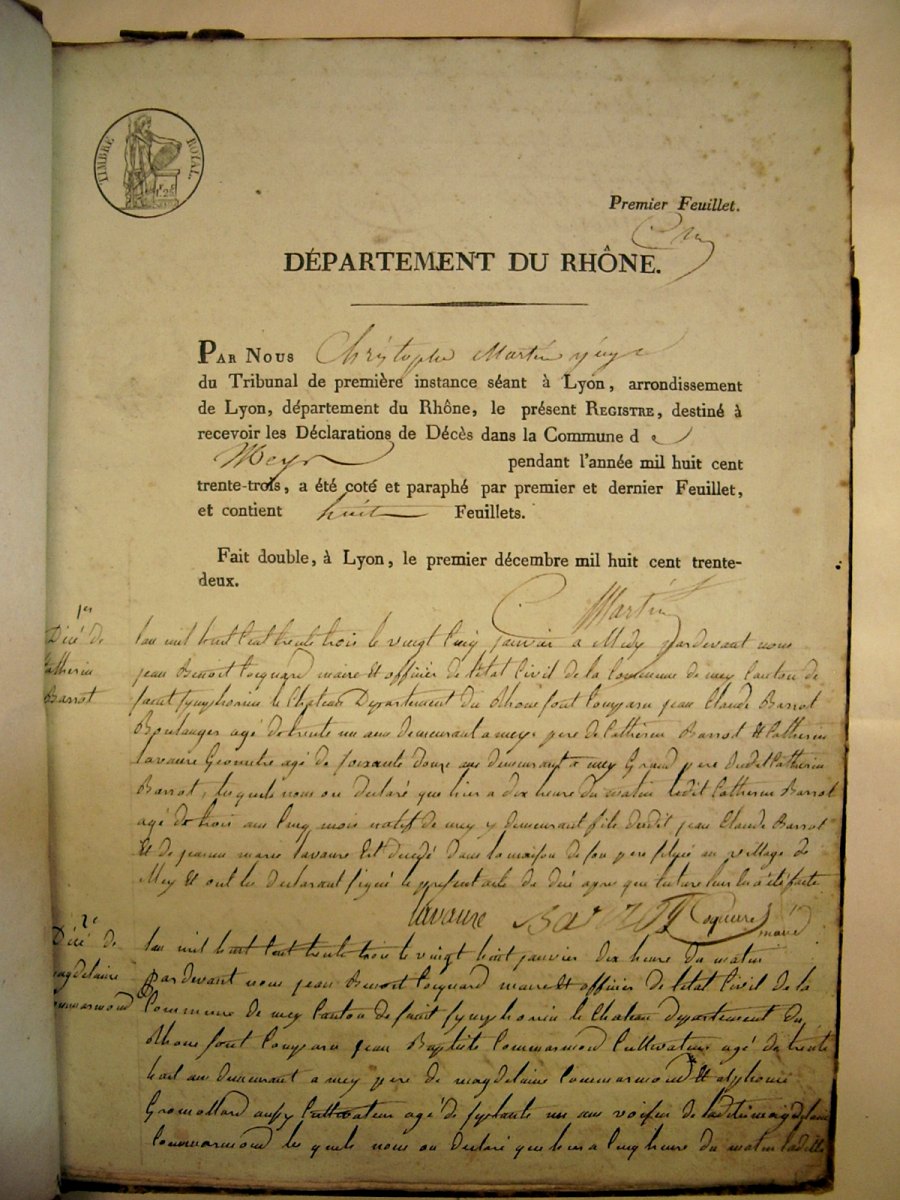 TIMBRE ROYAL
Premier Feuillet.
DÉPARTEMENT DU RHÔNE.
PAR NOUS Christophe Martin juge
du Tribunal de première instance séant à Lyon, arrondissement
de Lyon, département du Rhône, le présent REGISTRE, destiné à
recevoir les Déclarations de Décès dans la Commune d e
Meys pendant l'année mil huit cent
trente-trois, a été coté et paraphé par premier et dernier Feuillet,
et contient huit Feuillets.
Fait double, à Lyon, le premier décembre mil huit cent trente-
deux.
C Martin
1er
Décé de
Catherin
Barrot
Lan mil huit cent trente trois le vingt cinq janvier a Midy pardevant nous
jean Benoit Coquard maire et officier de letat Civil de la Commune de mey Canton de
saint symphorien le Chateau Departement du Rhone sont Comparu jean Claude Barrot
Boulanger agé de trente un ans demeurant a mey pere de Catherin Barrot et Catherin
lavaure Geometre agé de soixante douze ans demeurant a mey Grand pere dudit Catherin
Barrot, lesquels nous on declaré que hier a dix heure du matin ledit Catherin Barrot
agé de trois ans Cinq mois natif de mey y demeurant fils dudit jean Claude Barrot
et de jeanne marie lavaure est decedé dans la maison de son pere au village de
Mey et ont les declarant signé le present acte de décé apres que lecture leur en a été faite
lavaure Barrot Coquard maire
2e
Décé de
magdelaine
Commarmond
Lan mil huit cent trente trois le vingt huit janvier dix heure du matin
pardevant nous jean Benoit Coquard maire et officier de letat Civil de la
Commune de mey Canton de saint symphorien le Chateau departement du
Rhone sont Comparu jean Baptiste Commarmond Cultivateur agé de trente
huit ans demeurant a mey pere de magdelaine Commarmond et
Gromollard aussy Cultivateur agé de ans voisin de ladite magdelaine
Commarmond les quels nous on declaré que hier a Cinq heure du matin ladite